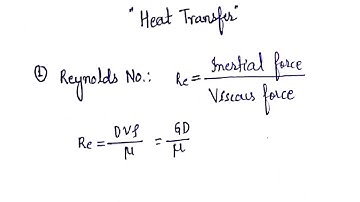 "Heat Transfer"
① Reynolds No.: Re = Inertial force / Viscous force
Re = DVρ / μ = GD / μ